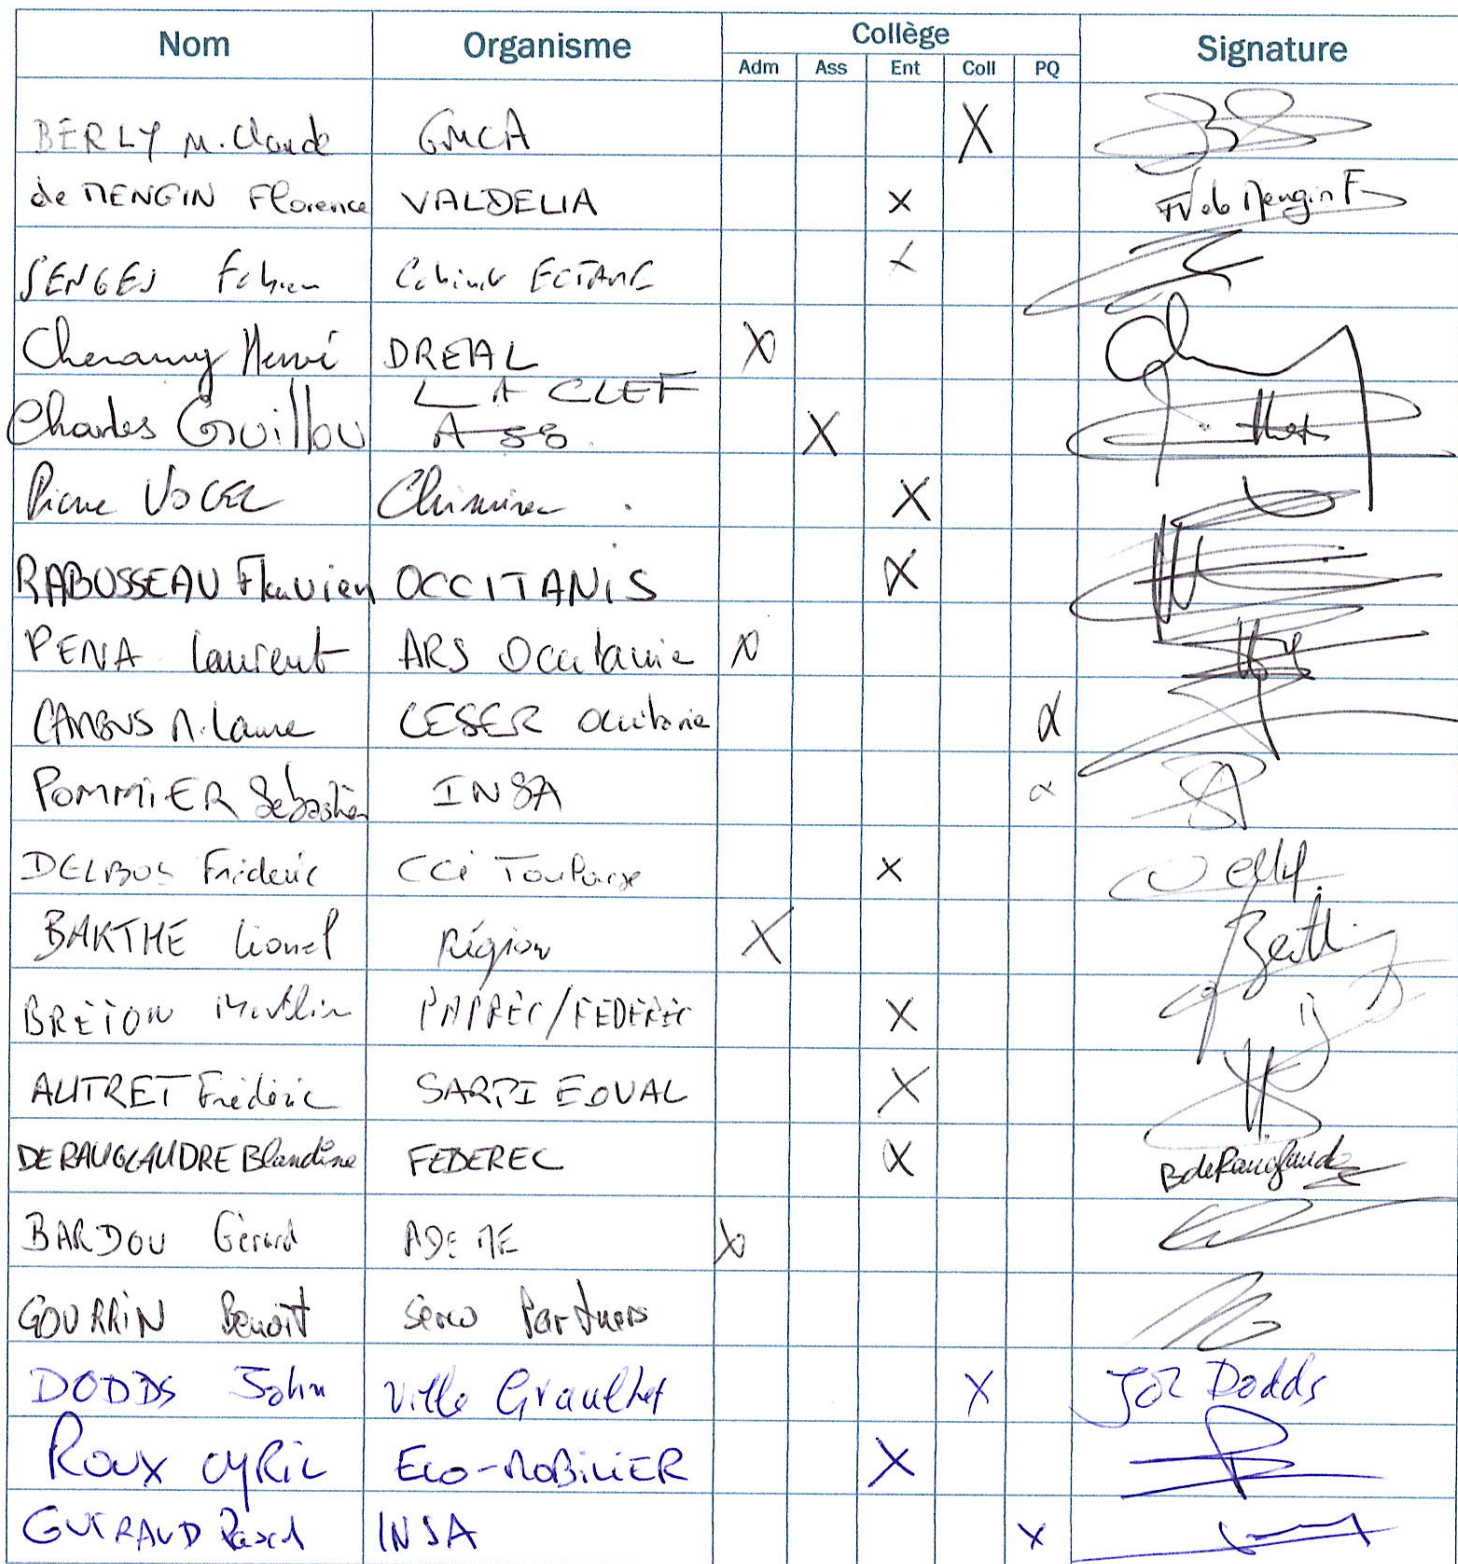 Nom Organisme Collège Signature
Adm Ass Ent Coll PQ
BERLY M. Claude GMCA X
de MENGIN Florence VALDELIA x FV de Mengin F
SENGES Fabien Cabinet ECTARE x
Cheramy Hervé DREAL X
LA CLEF
Charles Guillou Ass. X
Pierre VOGEL Chimirec X
RABUSSEAU Flavien OCCITANIS X
PENA Laurent ARS Occitanie X
CAMBUS M. Laure CESER Occitanie X
POMMIER Sébastien INSA x
DELBOS Frédéric CCi Toulouse x
BARTHE Lionel Région X
BRETON PAPREC/FEDEREC X
AUTRET Frédéric SARPI X
DE RAUGLAUDRE Blandine FEDEREC X B de Rauglaudre
BARDOU Gérard ADEME X
GOURRIN Benoît Partners
DODDS John Ville Graulhet X Dodds
ROUX CYRIC ECO-MOBILIER X
GUIRAUD Pascal INSA x